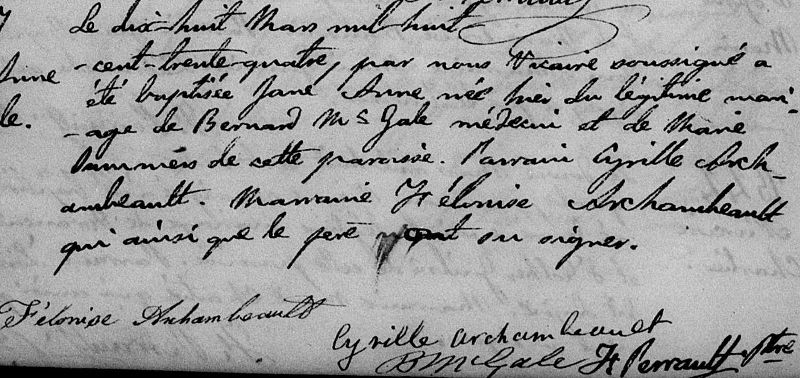 Le dix-huit Mars mil huit-
-cent-trente-quatre, par nous Vicaire soussigné a
Anne
été baptisée Jane Anne née hier du légitime mari-
le.
-age de Bernard Mc Gale médecin et de Marie
Summers de cette paroisse. Parrain Cyrille Arch-
ambeault. Marraine Félonise Archambeault
qui ainsi que le père ont su signer.
Félonise Archambeault
Cyrille Archambeault
B McGale Perrault Ptre